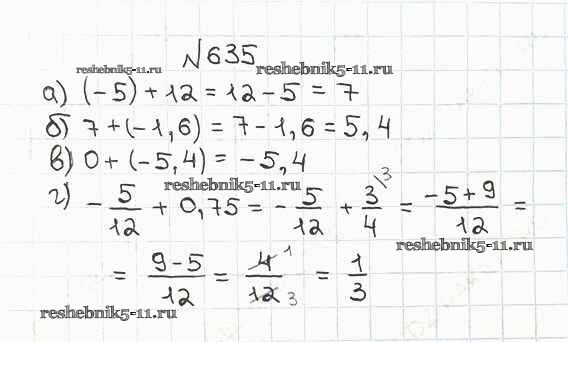 №635
reshebnik5-11.ru reshebnik5-11.ru
а) (-5) + 12 = 12 - 5 = 7
б) 7 + (-1,6) = 7 - 1,6 = 5,4
в) 0 + (-5,4) = -5,4
reshebnik5-11.ru
г) - 5/12 + 0,75 = - 5/12 + 3/4 \3 = -5+9/12 =
reshebnik5-11.ru
= 9-5/12 = 4/12 1 3 = 1/3
reshebnik5-11.ru